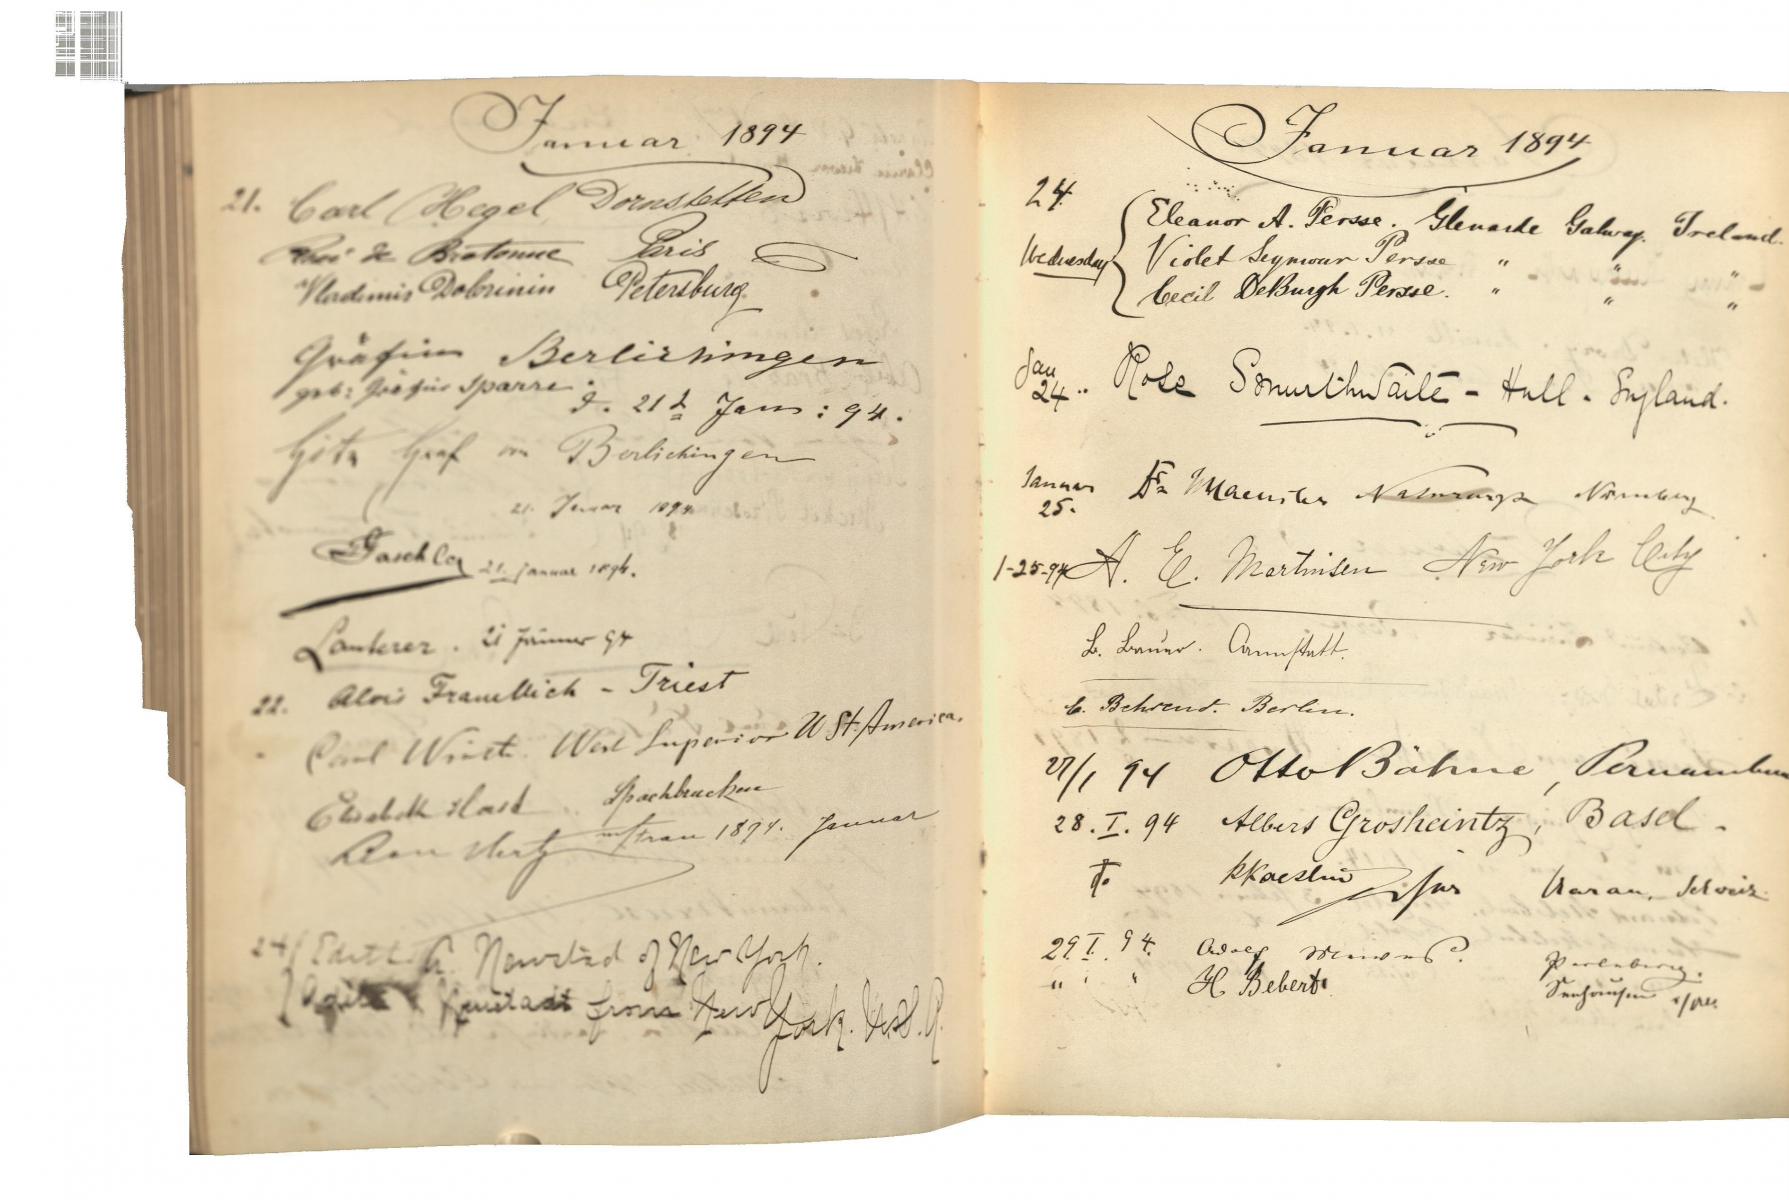 Januar 1894
21. Carl Hegel Dornstetten
de Bretonne Paris
Wladimir Dobrinin Petersburg
Gräfin Berlichingen
geb: Gräfin Sparre
d. 21t Jan: 94.
Götz Graf von Berlichingen
21. Januar 1894
21. Januar 1894.
Lauterer. 21 Jänner 94
22. Alois - Triest
Carl Wirth. West Superior U St. America.
Elisabeth Spachbrucken
Frau 1894. Januar
24/ Edith A. Newstad of New York.
from New York. U.S.A.
Januar 1894
24. Eleanor A. Persse. Glenarde Galway. Ireland.
Wednesday Violet Seymour Persse " " "
Cecil DeBurgh Persse. " " "
Jan 24.. Rose Smurthwaite - Hull. England.
Januar 25. Dr. Nürnberg
1-25-94 A. E. Martinsen New York City
B. Bauer. Cannstatt.
C. Behrend. Berlin.
27/1 94 Otto Bähne,
28. I. 94 Albert Grosheintz, Basel.
do. jun Aarau, Schweiz.
29 I. 94. Adolf Perleberg.
" " " H Bebert